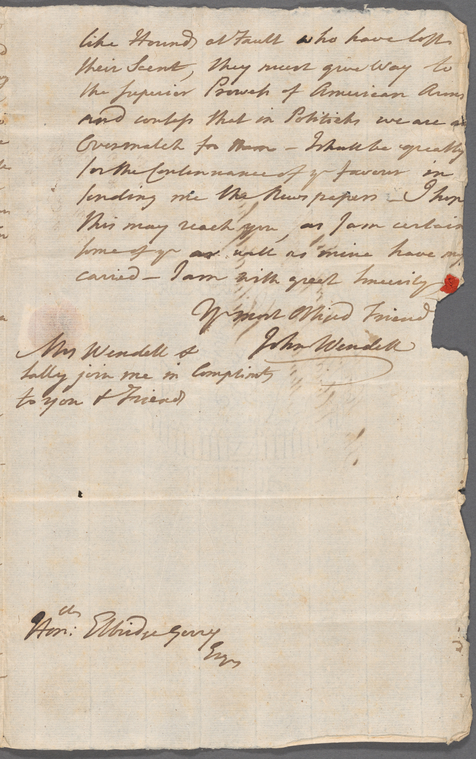 like Hounds at Fault who have lost
their Scent, they must give Way to
the superior Prowess of American Arms
and confess that in Politicks we are a
Overmatch for them – I shall be greatly
for the Continuance of yr favour in
sending me the News papers – I hope
this may reach you, as I am certain
some of yr as well as mine have
carried – I am with great Sincerity
Yr most Obliged Friend
John Wendell
Mrs Wendell &
Sally join me in Complimts
to you & Friends
Honble: Elbridge Gerry
Esqr